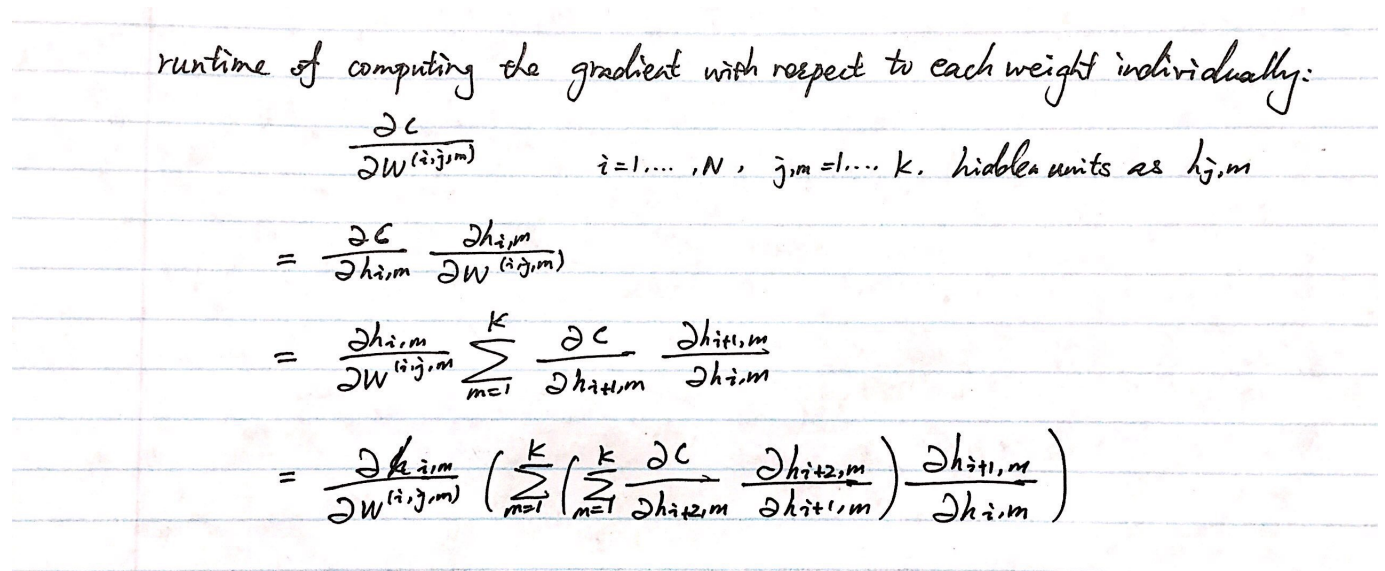 runtime of computing the gradient with respect to each weight individually:
∂C/∂W^(i,j,m)    i=1,...,N, j,m=1...K. hidden units as h_j,m
= ∂C/∂h_i,m ∂h_i,m/∂W^(i,j,m)
= ∂h_i,m/∂W^(i,j,m ∑_{m=1}^{K} ∂C/∂h_i+1,m ∂h_i+1,m/∂h_i,m
= ∂h_i,m/∂W^(i,j,m) (∑_{m=1}^{K} (∑_{m=1}^{K} ∂C/∂h_i+2,m ∂h_i+2,m/∂h_i+1,m) ∂h_i+1,m/∂h_i,m)